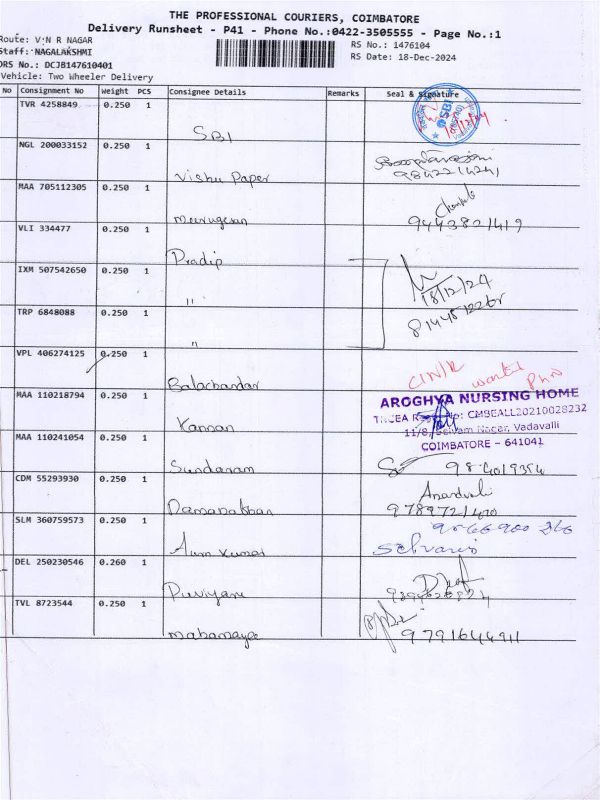 THE PROFESSIONAL COURIERS, COIMBATORE
Delivery Runsheet - P41 - Phone No.:0422-3505555 - Page No.:1
Route: V N R NAGAR
RS No.: 1476104
Staff: NAGALAKSHMI
RS Date: 18-Dec-2024
DRS No.: DCJ8147610401
Vehicle: Two Wheeler Delivery
No Consignment No Weight PCS Consignee Details Remarks Seal & Signature
TVR 4258849 0.250 1
SBI
SBI
NGL 200033152 0.250 1
Vishu Paper
MAA 705112305 0.250 1
Murugesan
9443821419
VLI 334477 0.250 1
Pradip
IXM 507542650 0.250 1
"
18/12/24
TRP 6848088 0.250 1
"
VPL 406274125 0.250 1
Balachandar
MAA 110218794 0.250 1
Kannan
AROGHYA NURSING HOME
CMBEALL20210028232
Vadavalli
COIMBATORE - 641041
MAA 110241054 0.250 1
Sundaram
CDM 55293930 0.250 1
SLM 360759573 0.250 1
Arun Kumar
DEL 250230546 0.260 1
TVL 8723544 0.250 1
9791644911